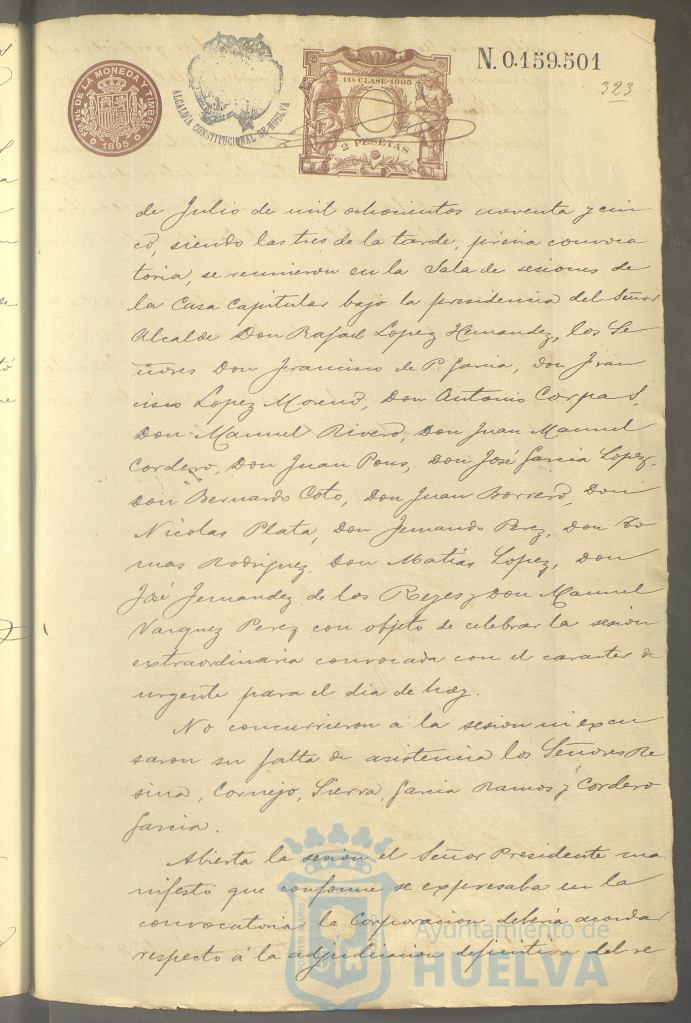 N. 0.159.501
323
Fca Nl DE LA MONEDA Y TIMBRE
1895
ALCALDIA CONSTITUCIONAL DE HUELVA
11ª CLASE-1895
2 PESETAS
de Julio de mil ochocientos noventa y cin
co, siendo las tres de la tarde, prévia convoca
toria, se reunieron en la Sala de sesiones de
la Casa Capitular bajo la presidencia del Señor
Alcalde Don Rafael Lopez Hernandez, los Se
ñores Don Francisco de P. Garcia, don Fran
cisco Lopez Moreno, Don Antonio Corpas,
Don Manuel Rivero, Don Juan Manuel
Cordero, Don Juan Pons, Don José Garcia Lopez,
Don Bernardo Coto, Don Juan Borrero, Don
Nicolas Plata, Don Fernando Perez, Don To
mas Rodriguez, Don Matias Lopez, Don
José Fernandez de los Reyes y Don Manuel
Vazquez Perez con objeto de celebrar la sesion
extraordinaria convocada con el caracter de
urgente para el dia de hoy.
No concurrieron á la sesion ni excu
saron su falta de asistencia los Señores Re
sina, Cornejo, Sierra, Garcia Ramos y Cordero
Garcia.
Abierta la sesion el Señor Presidente ma
nifestó que conforme se expresaba en la
convocatoria la Corporacion debería acordar
respecto á la adjudicacion definitiva del re
Ayuntamiento de
HUELVA